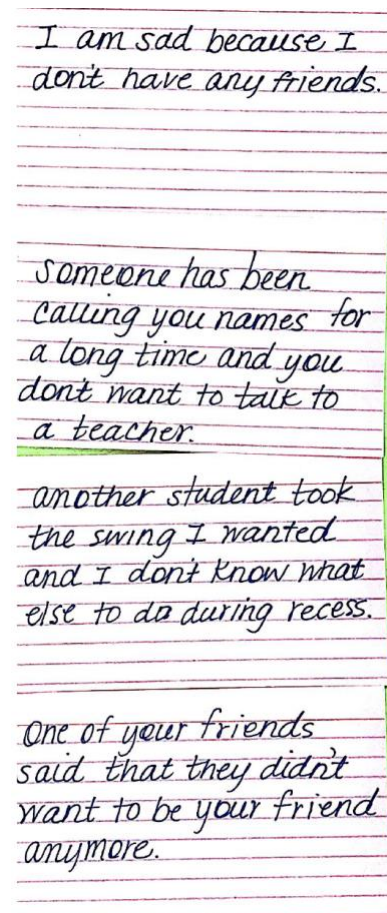 I am sad because I
don't have any friends.
someone has been
calling you names for
a long time and you
dont want to talk to
a teacher.
another student took
the swing I wanted
and I don't know what
else to do during recess.
One of your friends
said that they didn't
want to be your friend
anymore.